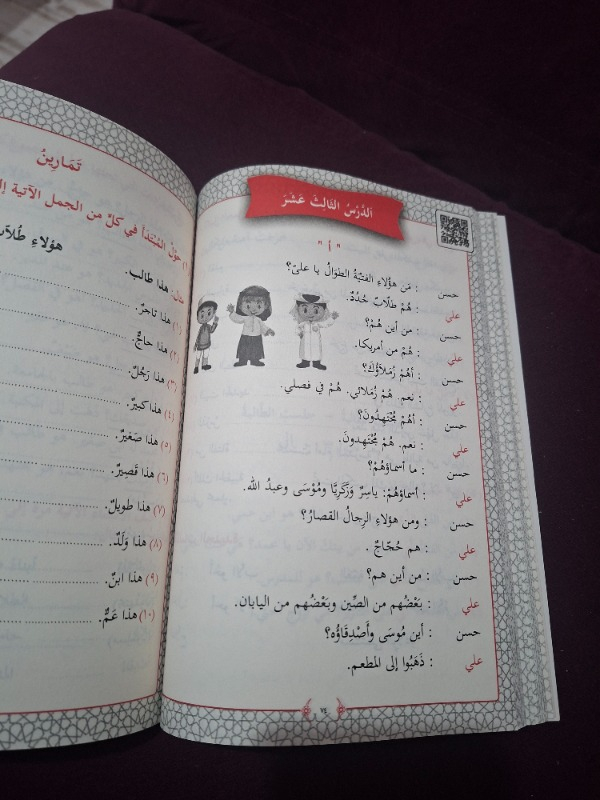 اَلدَّرْسُ الثَّالِثَ عَشَرَ
" أ "
حسن : مَن هؤُلاءِ الفِتْيَةُ الطِوَالُ يا عليّ؟
علي : هُمْ طلّابٌ جُدُدٌ.
حسن : من أين هُمْ؟
علي : هُمْ من أمريكا.
حسن : أَهُمْ زُمَلاؤُكَ؟
علي : نعم. هُمْ زُملائي. هُمْ في فصلي.
حسن : أَهُمْ مُجْتَهِدُونَ؟
علي : نعم. هُمْ مُجْتَهِدونَ.
حسن : ما أسماؤُهُمْ؟
علي : أسماؤُهُمْ: ياسِرٌ وَزَكَرِيَّا ومُوْسَى وعبدُ الله.
حسن : ومن هؤلاءِ الرِجالُ القصارُ؟
علي : هم حُجّاجٌ.
حسن : من أين هم؟
علي : بَعْضُهم من الصِّين وبَعْضُهم من اليابان.
حسن : أين مُوسَى وأَصْدِقَاؤُه؟
علي : ذَهَبُوا إلى المطعم.
٧٤
تَمَارِينُ
١) حَوِّل المُبْتَدَأَ في كلٍّ من الجمل الآتية
هؤلاءِ
مثل: هذا طالب.
(١) هذا تاجرٌ.
(٢) هذا حاجٌّ.
(٣) هذا رَجُلٌ.
(٤) هذا كبيرٌ.
(٥) هذا صَغيرٌ.
(٦) هذا قَصِيرٌ.
(٧) هذا طويلٌ.
(٨) هذا وَلَدٌ.
(٩) هذا ابنٌ.
(١٠) هذا عَمٌّ.